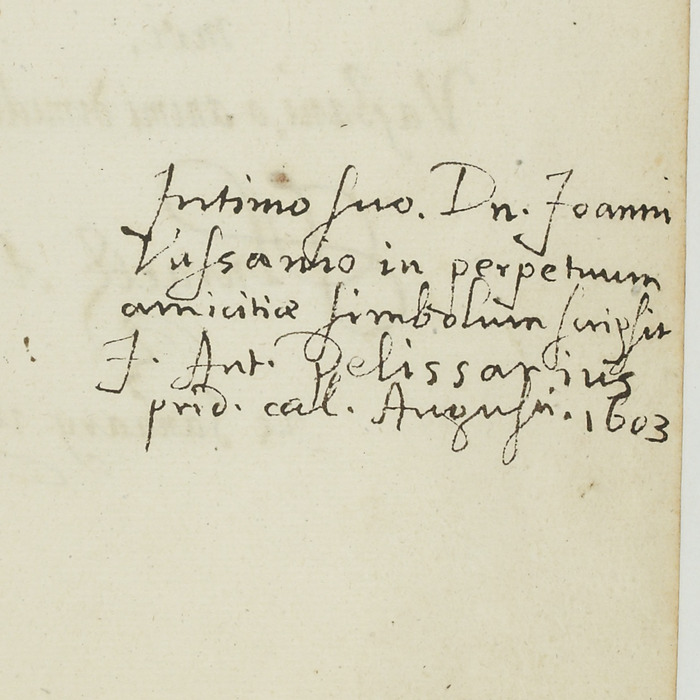 Intimo suo. Dn. Joanni
Vassanio in perpetuum
amicitiæ simbolum scripsit
J. Ant. Pelissarius
prid. cal. Augusti. 1603